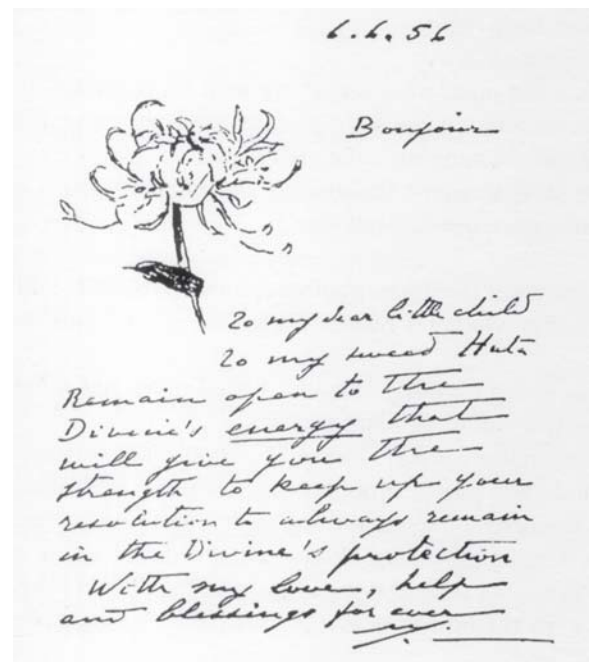 6.6.56
Bonjour
To my dear little child
To my sweet Huta
Remain open to the
Divine's energy that
will give you the
strength to keep up your
resolution to always remain
in the Divine's protection
With my love, help
and blessings for ever